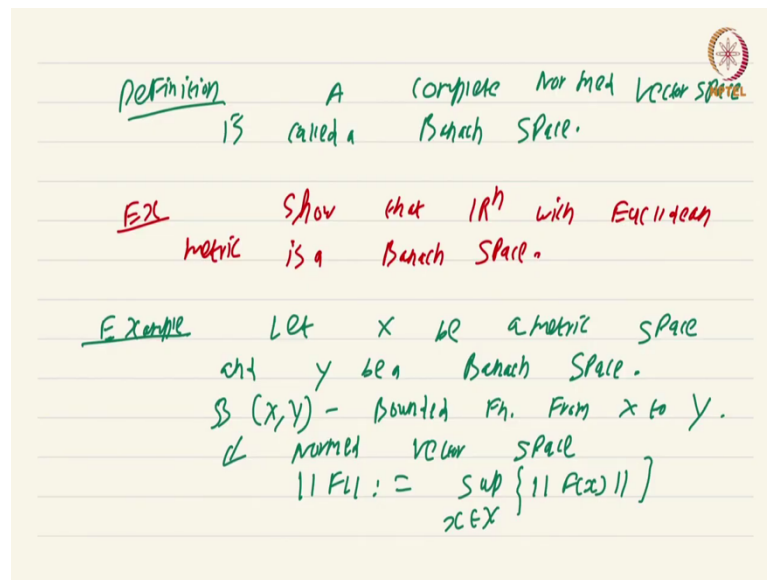 Definition A complete Normed vector space
is called a Banach space.
Ex Show that ℝⁿ with Euclidean
metric is a Banach space.
Example Let X be a metric space
and Y be a Banach space.
B(X,Y) - Bounded Fn. From X to Y.
Normed vector space
||F|| := sup {||F(x)||}
x∈X
NPTEL